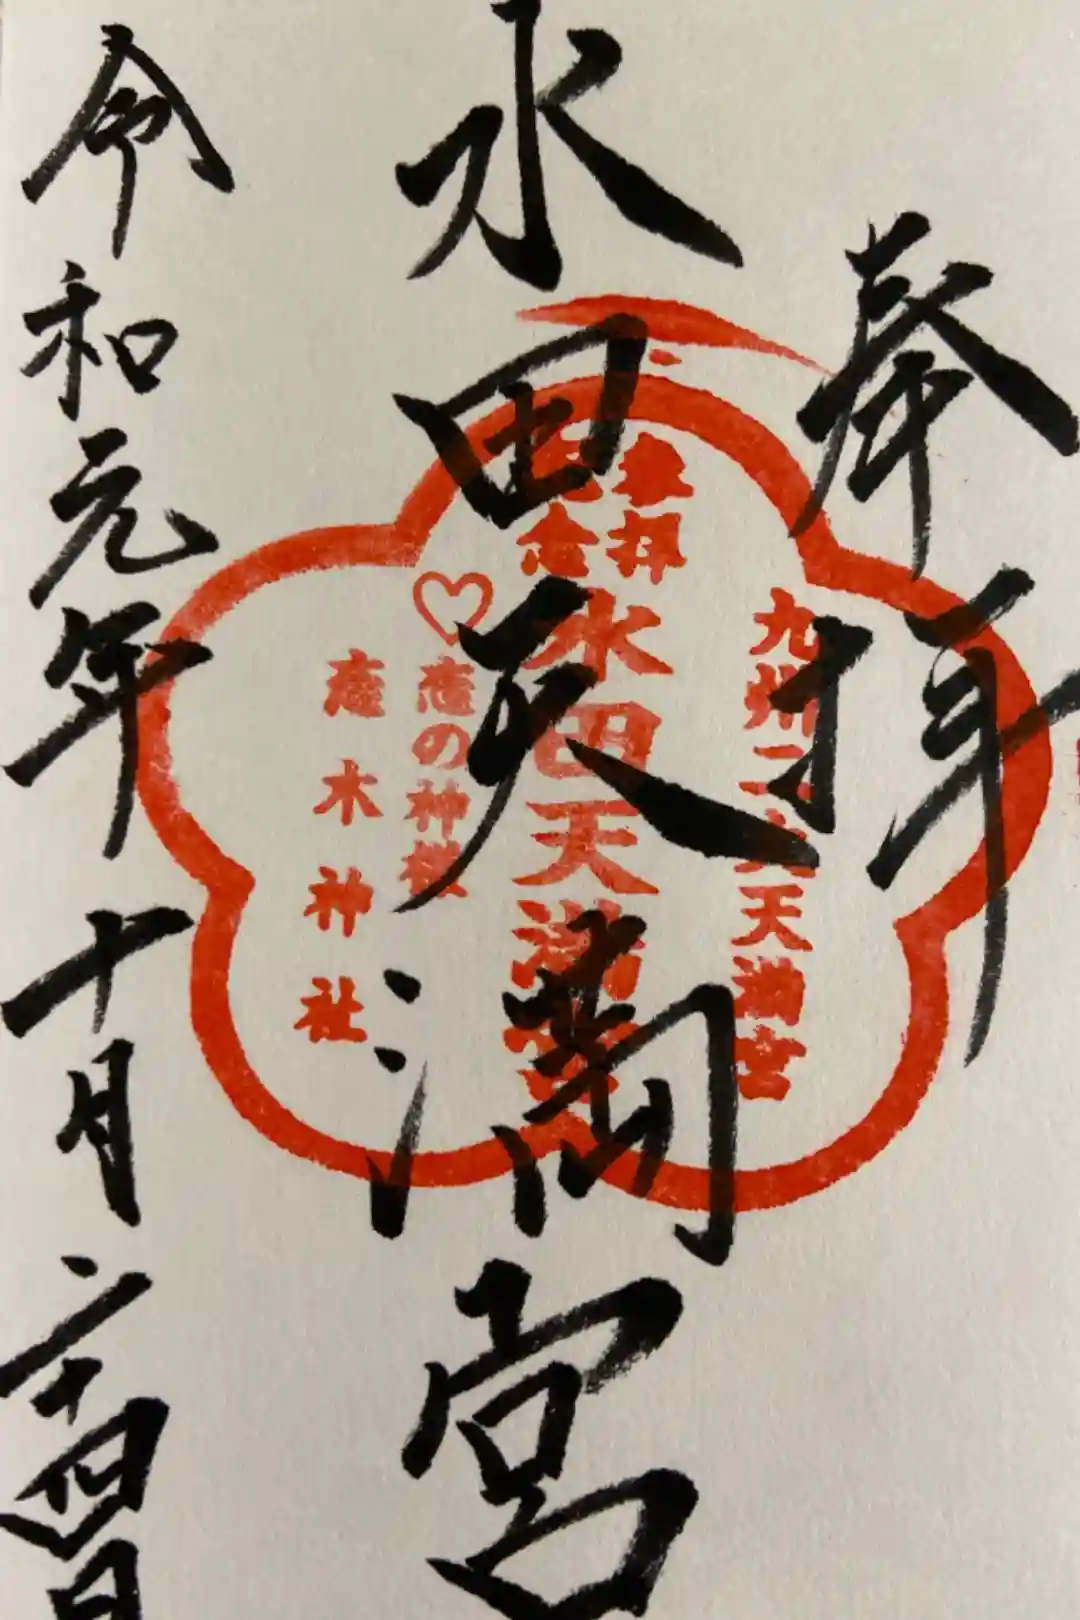 奉拝
水田天満宮
令和元年十月二十四日
九州二大天満宮
奉拝
記念
水田天満宮
恋の神様
恋木神社